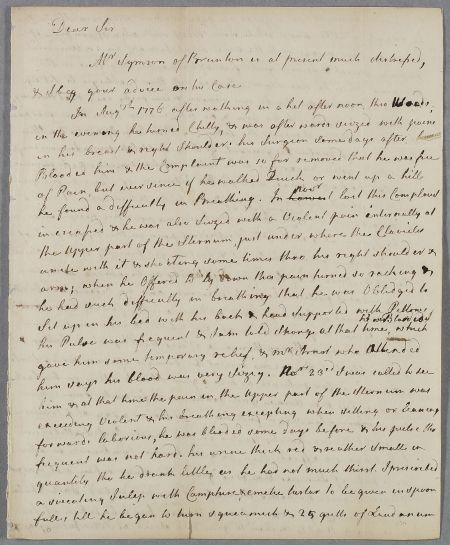 Dear Sir
Mr Symson of Branton is at present much distressed,
& I beg your advice on his Case
In Augst 1776 after walking in a hot after noon thro Woods,
in the evening he turned Chilly, & was after wards seized with pains
in his breast & right Shoulder. his Surgeon some days after
Blooded him & the Complaint was so far removed that he was free
of Pain but ever since if he walked Quick or went up a hill
he found a difficulty in Breathing. In Novr last this Complaint
increased & he was also Seized with a Violent pain internally at
the Upper part of the Sternum, just under where the Clavicles
unite with it & shooting some times thro his right shoulder &
arm; when he Offered to ly down this pain turned so raching &
he had such difficulty in breathing that he was Obliedged to
Sit up in his bed with his back & head Supported with Pillows
his Pulse was frequent & I am told Strong at that time, he was Blooded which
gave him some temporary relief, & Mr who Attended
him says his blood was very Sizey. Novr 23d I was called to see
him & at that time the pain in the Upper part of the Sternum was
exceeding Violent & his breathing excepting when sitting or leaning
forwards laborious, he was blooded some days before & his pulse tho
frequent was not hard. his urine thick red & rather small in
quantity tho he drank little, as he had not much thirst. I prescribed
a sweating Julep with Camphire & emetic tartar to be given in spoon
fulls, till he began to turn squeamish & 25 gutts of Laudanum